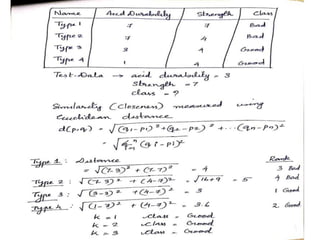 Name Acid Durability Strength Class
Type 1 7 7 Bad
Type 2 7 4 Bad
Type 3 3 4 Good
Type 4 1 4 Good
Test-Data → acid durability = 3
Strength = 7
class = ?
Similarity (closeness) measured using
Euclidean distance
d(p,q) = √(q₁-p₁)²+(q₂-p₂)²+...(qn-pn)²
Type 1 : Distance Rank
= √(7-3)² + (7-7)² = 4 3 Bad
Type 2 : √(7-3)² + (4-7)² = √16+9 = 5 4 Bad
Type 3 : √(3-3)² + (4-7)² = 3 1 Good
Type 4 : √(1-3)² + (4-7)² = 3.6 2 Good
K = 1 Class = Good
K = 2 Class = Good
K = 3 Class = Good